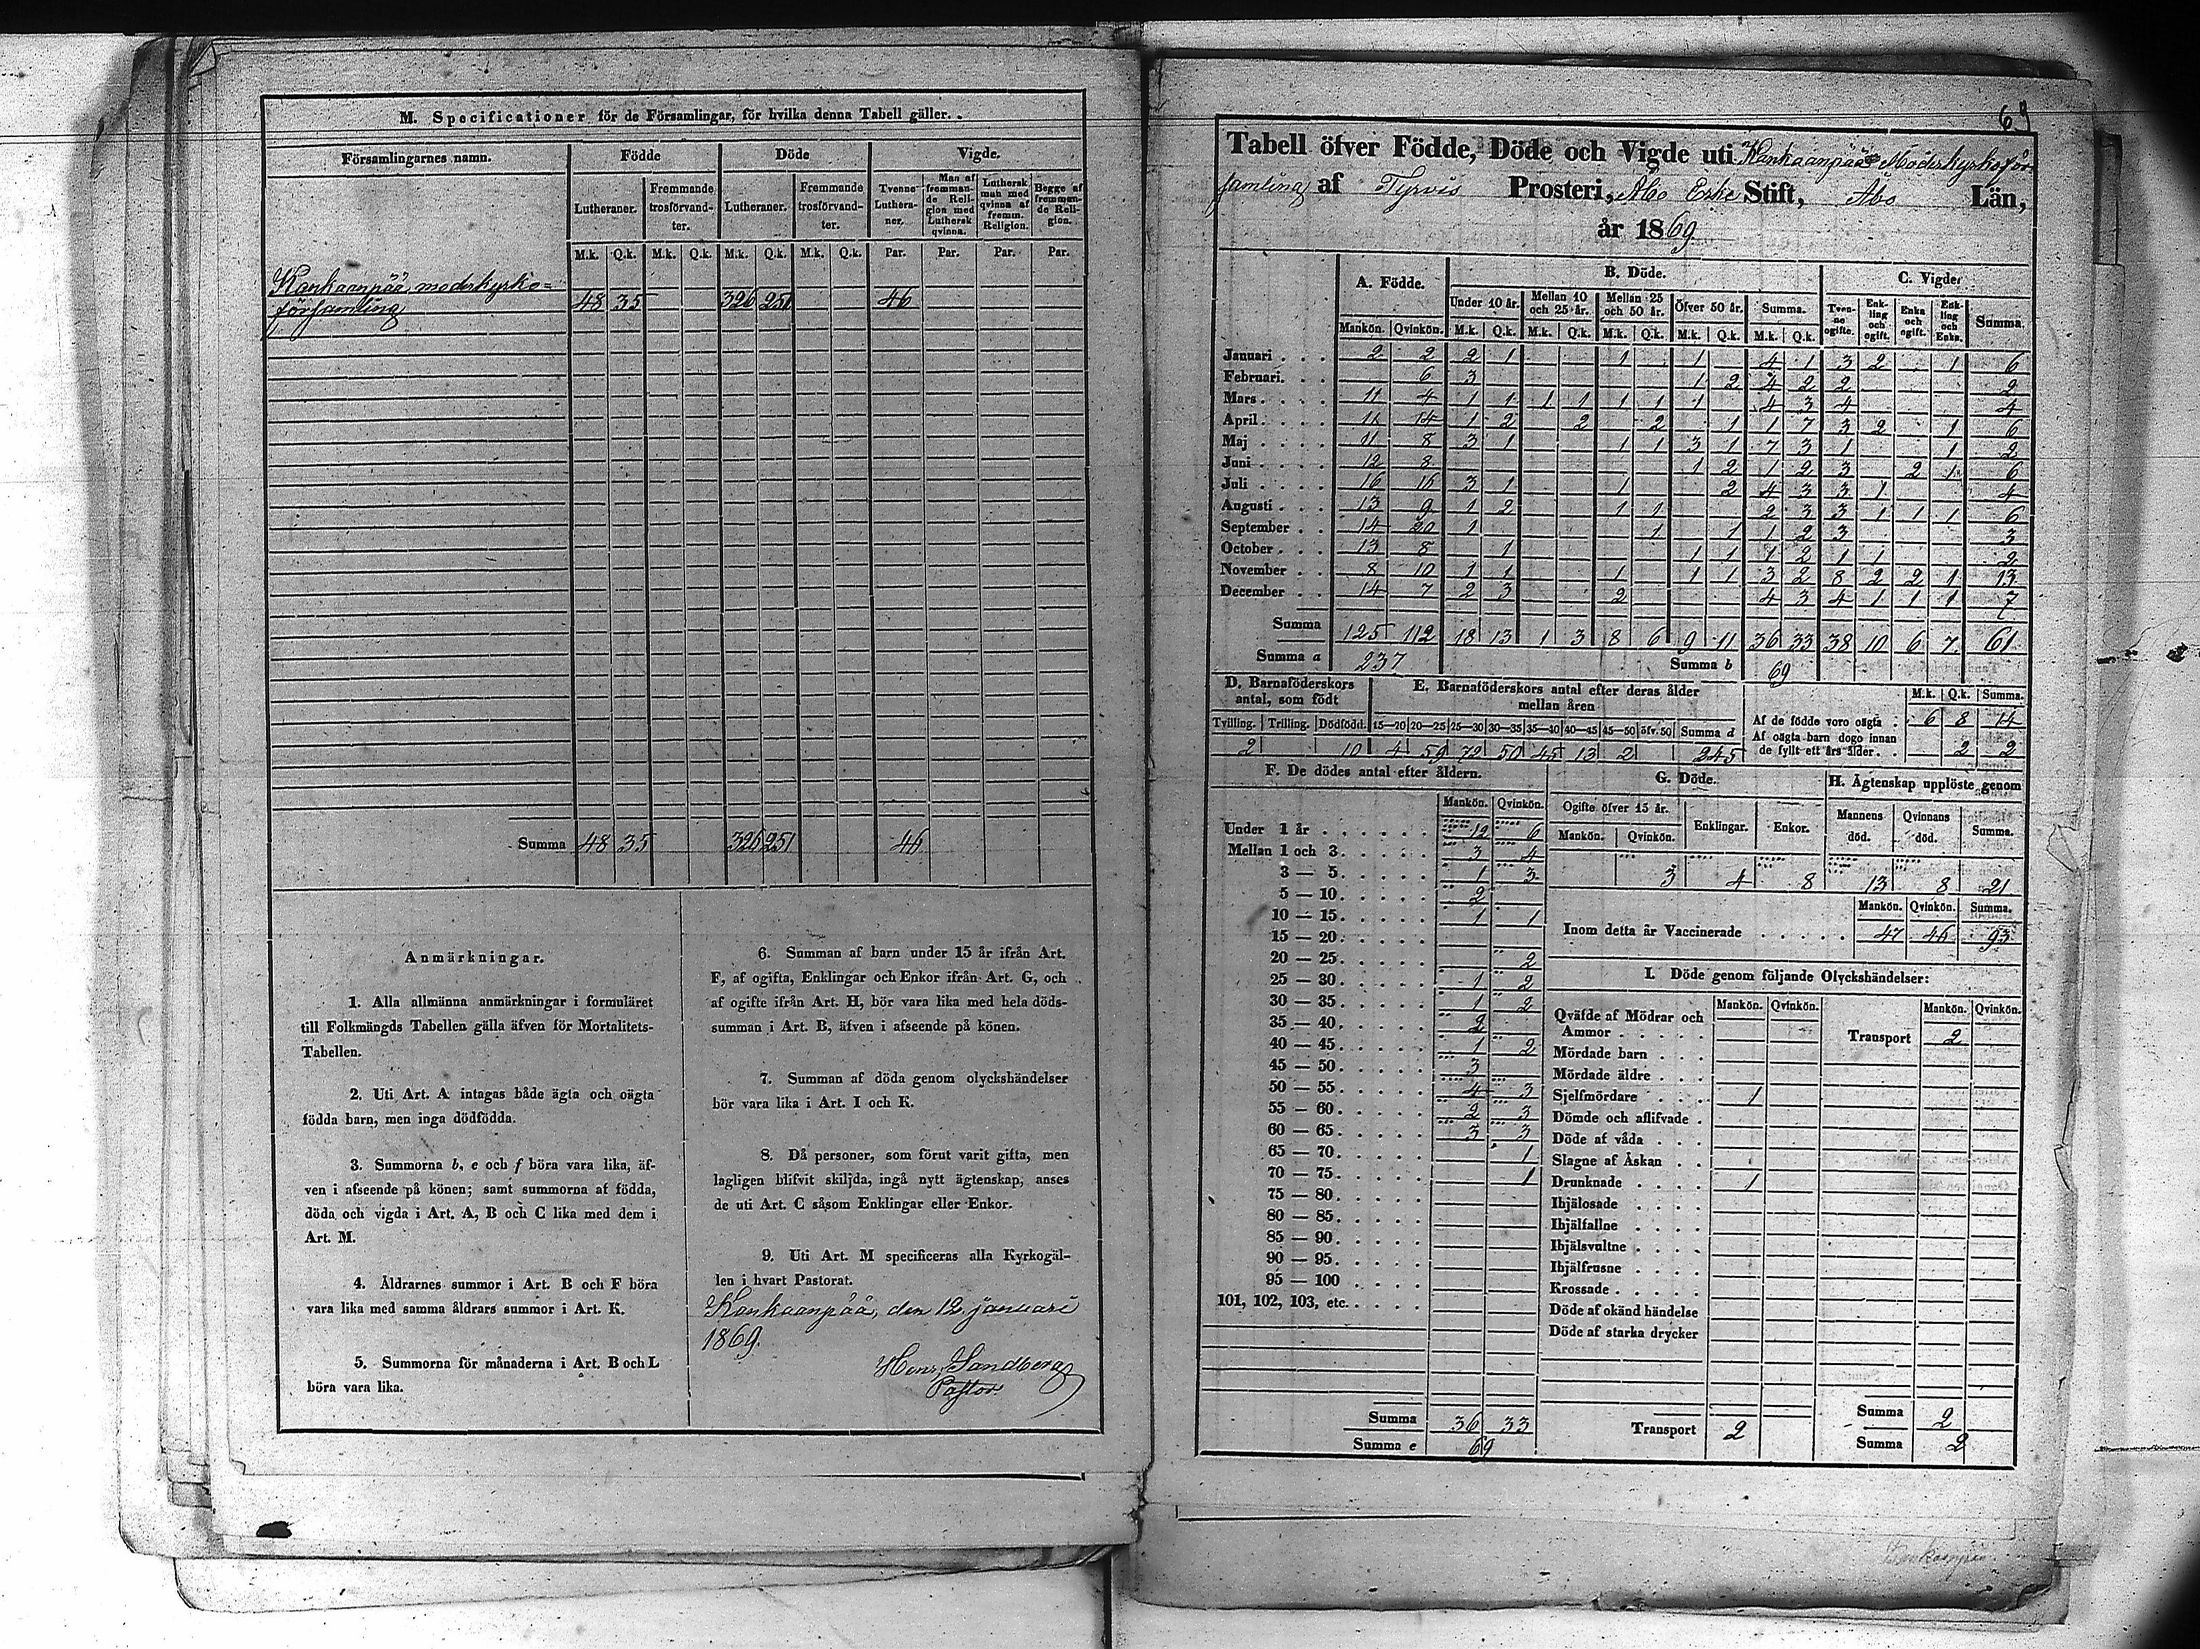 M. Specificationer för de Församlingar, för hvilka denna Tabell gäller.
Församlingarnes namn. Födde Döde Vigde.
Lutheraner. Fremmande trosförvandter. Lutheraner. Fremmande trosförvandter. Tvenne Lutheraner. Man af fremmande Religion med Luthersk qvinna. Luthersk man med qvinna af fremm. Religion. Begge af fremmande Religion.
M.k. Q.k. M.k. Q.k. M.k. Q.k. M.k. Q.k. Par. Par. Par. Par.
Kankaanpää moderkyrko=
församling 48 35 326 251 46
Summa 48 35 326 251 46
Anmärkningar.
1. Alla allmänna anmärkningar i formuläret
till Folkmängds Tabellen gälla äfven för Mortalitets-
Tabellen.
2. Uti Art. A intagas både ägta och oägta
födda barn, men inga dödfödda.
3. Summorna b, e och f böra vara lika, äf-
ven i afseende på könen; samt summorna af födda,
döda och vigda i Art. A, B och C lika med dem i
Art. M.
4. Åldrarnes summor i Art. B och F böra
vara lika med samma åldrars summor i Art. K.
5. Summorna för månaderna i Art. B och L
böra vara lika.
6. Summan af barn under 15 år ifrån Art.
F, af ogifta, Enklingar och Enkor ifrån Art. G, och
af ogifte ifrån Art. H, bör vara lika med hela döds-
summan i Art. B, äfven i afseende på könen.
7. Summan af döda genom olyckshändelser
bör vara lika i Art. I och K.
8. Då personer, som förut varit gifta, men
lagligen blifvit skiljda, ingå nytt ägtenskap, anses
de uti Art. C såsom Enklingar eller Enkor.
9. Uti Art. M specificeras alla Kyrkogäl-
len i hvart Pastorat.
Kankaanpää, den 12 januari
1869.
Henr. Sandberg
Pastor
69
Tabell öfver Födde, Döde och Vigde uti Kankaanpää Moderkyrkoför-
samling af Tyrvis Prosteri, Åbo Erke Stift, Åbo Län,
år 1869
A. Födde. B. Döde. C. Vigde
Under 10 år. Mellan 10 och 25 år. Mellan 25 och 50 år. Öfver 50 år. Summa. Tvenne ogifte. Enkling och ogift. Enka och ogift. Enkling och Enka. Summa.
Mankön. Qvinkön. M.k. Q.k. M.k. Q.k. M.k. Q.k. M.k. Q.k. M.k. Q.k.
Januari 2 2 2 1 1 1 4 1 3 2 1 6
Februari. 6 3 1 2 4 2 2 2
Mars 11 4 1 1 1 1 1 1 1 4 3 4 4
April. 11 14 1 2 2 2 1 1 7 3 2 1 6
Maj 11 8 3 1 1 1 3 1 7 3 1 1 2
Juni 12 8 1 2 1 2 3 2 1 6
Juli 16 15 3 1 1 2 4 3 3 1 4
Augusti 13 9 1 2 1 1 2 3 3 1 1 1 6
September 14 20 1 1 1 1 2 3 3
October 13 8 1 1 1 1 2 1 1 2
November 8 10 1 1 1 1 1 3 2 8 2 2 1 13
December 14 7 2 3 2 4 3 4 1 1 1 7
Summa 125 112 18 13 1 3 8 6 9 11 36 33 38 10 6 7 61
Summa a 237 Summa b 69
D. Barnaföderskors antal, som födt
Tvilling. Trilling. Dödfödd.
2 10
E. Barnaföderskors antal efter deras ålder mellan åren
15—20 20—25 25—30 30—35 35—40 40—45 45—50 öfv. 50 Summa d
4 59 72 50 45 13 2 245
M.k. Q.k. Summa.
Af de födde voro oägta 6 8 14
Af oägta barn dogo innan
de fyllt ett års ålder 2 2
F. De dödes antal efter åldern.
Mankön. Qvinkön.
Under 1 år 12 6
Mellan 1 och 3 3 4
3 — 5 1 3
5 — 10 2
10 — 15 1 1
15 — 20
20 — 25 2
25 — 30 1 2
30 — 35 1 2
35 — 40 2
40 — 45 1 2
45 — 50 3
50 — 55 4 3
55 — 60 2 3
60 — 65 3 3
65 — 70 1
70 — 75 1
75 — 80
80 — 85
85 — 90
90 — 95
95 — 100
101, 102, 103, etc.
Summa 36 33
Summa e 69
G. Döde.
Ogifte öfver 15 år. Enklingar. Enkor.
Mankön. Qvinkön.
3 4 8
H. Ägtenskap upplöste genom
Mannens död. Qvinnans död. Summa.
13 8 21
Mankön. Qvinkön. Summa.
Inom detta år Vaccinerade 47 46 93
I. Döde genom följande Olyckshändelser:
Mankön. Qvinkön. Mankön. Qvinkön.
Qväfde af Mödrar och
Ammor Transport 2
Mördade barn
Mördade äldre
Sjelfmördare 1
Dömde och aflifvade
Döde af våda
Slagne af Åskan
Drunknade 1
Ihjälosade
Ihjälfallne
Ihjälsvultne
Ihjälfrusne
Krossade
Döde af okänd händelse
Döde af starka drycker
Summa 2
Transport 2 Summa 2